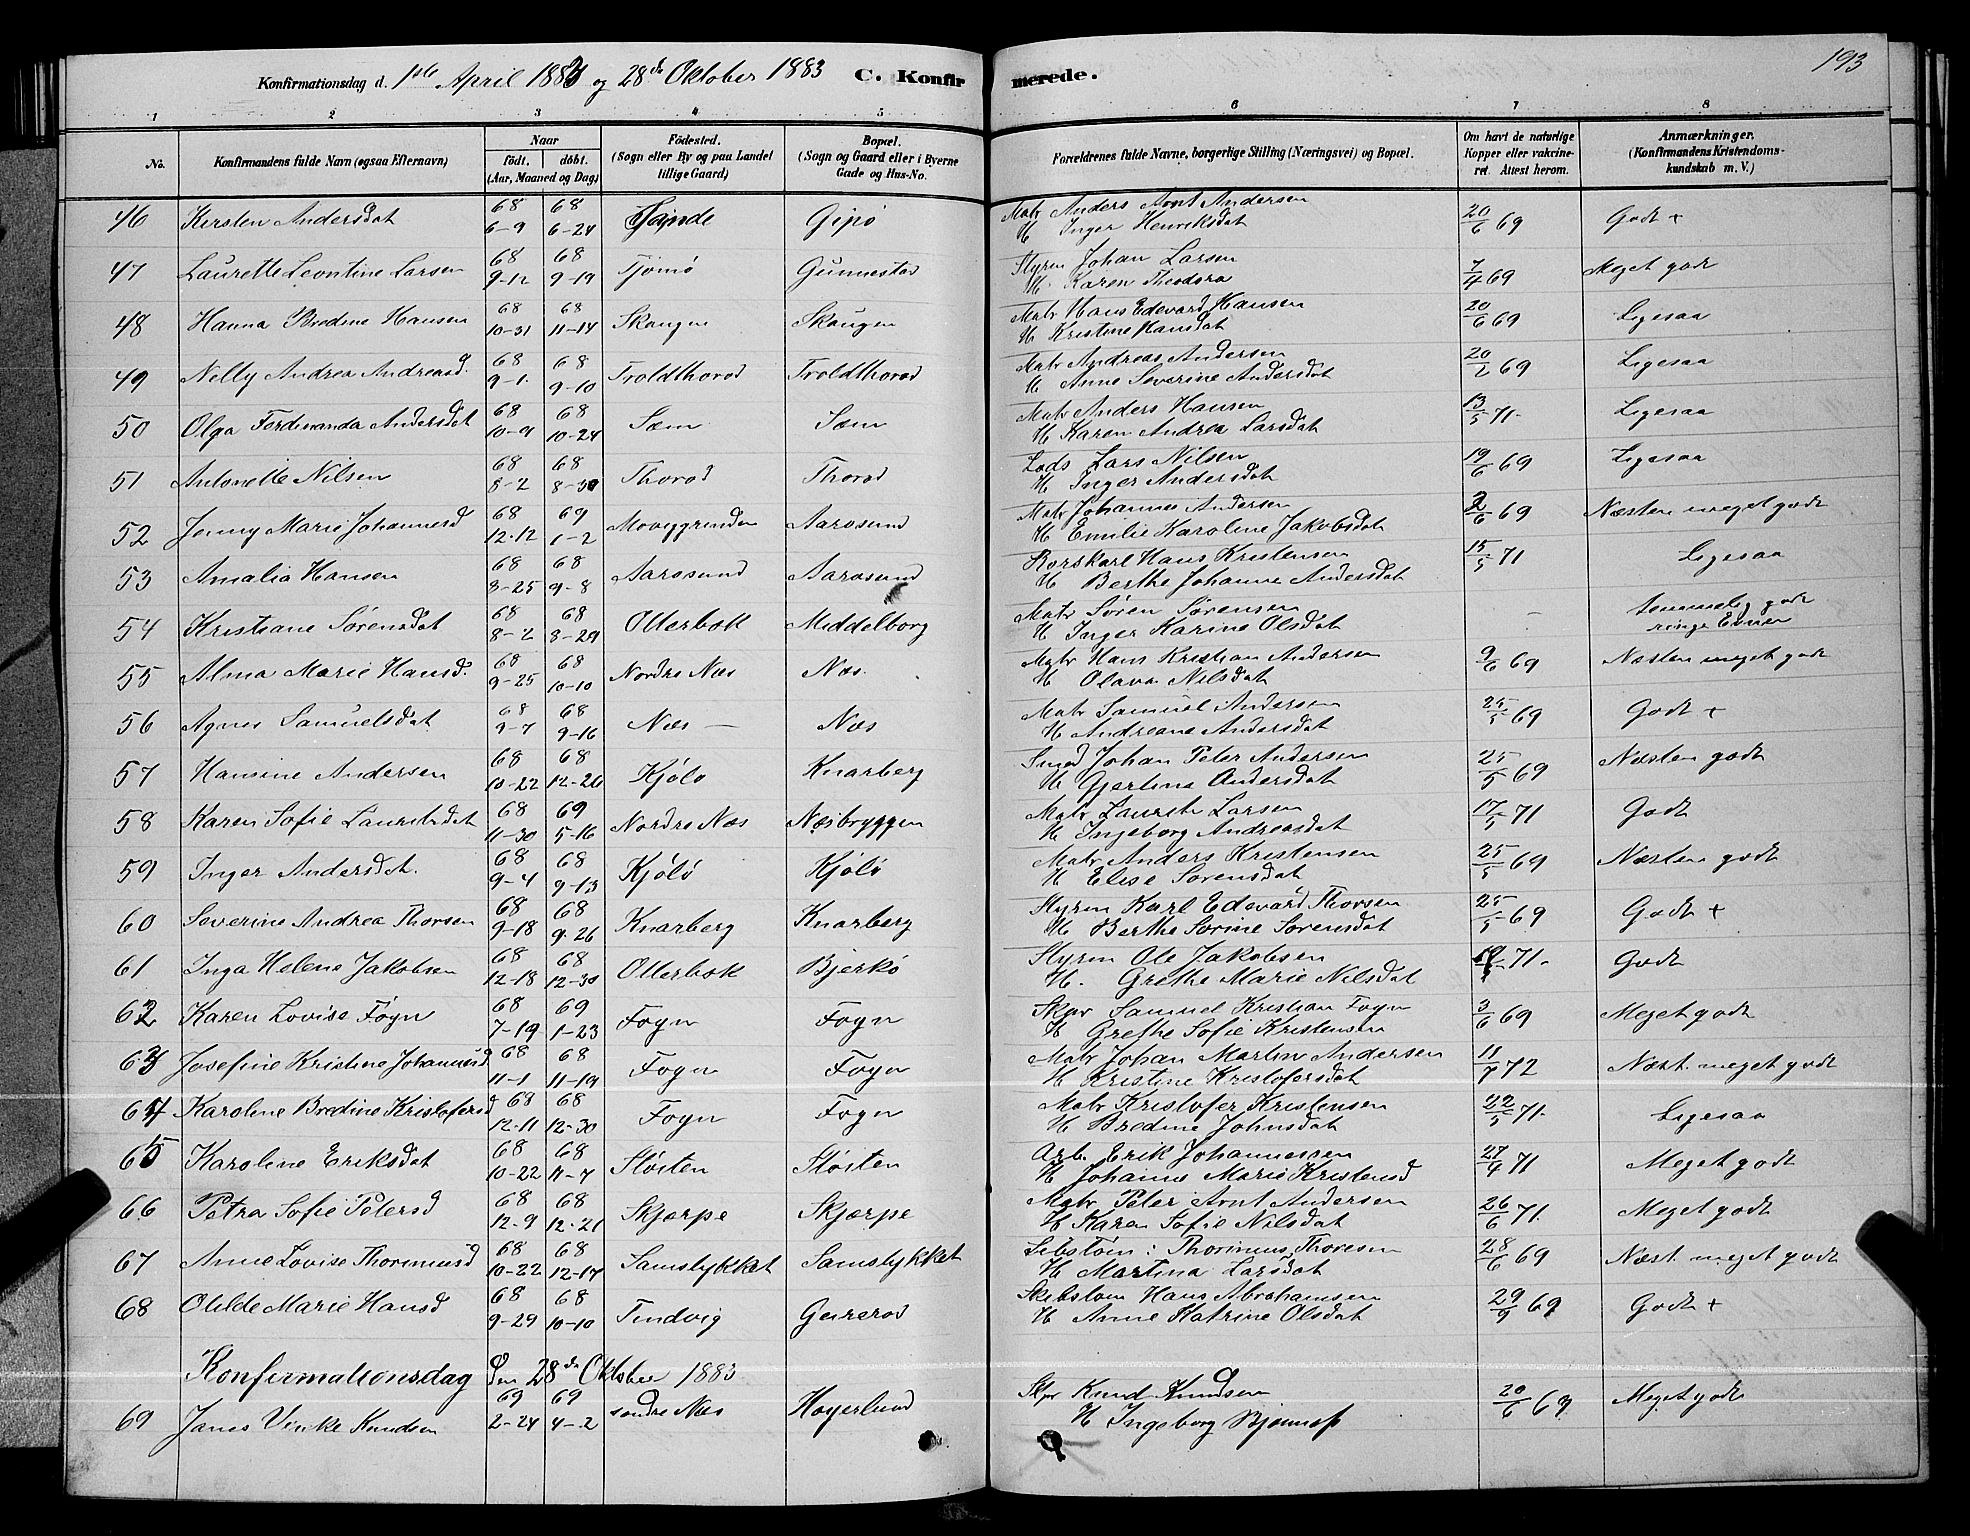 193
Konfirmationsdag d. 1ste April 1883 og 28de Oktober 1883 C. Konfirmerede.
1 2 3 4 5 6 7 8
No. Konfirmandens fulde Navn (ogsaa Efternavn) Naar födt. döbt. (Aar, Maaned og Dag) Födested. (Sogn eller By og paa Landet tillige Gaard) Bopæl. (Sogn og Gaard eller i Byerne Gade og Hus-No. Forældrenes fulde Navne, borgerlige Stilling (Næringsvei) og Bopæl. Om havt de naturlige Kopper eller vakcineret. Attest herom. Anmærkninger. (Konfirmandens Kristendomskundskab m. V.)
46 Kirsten Andersdat 68 6-9 68 6-24 Gipö Matr Anders Arnt Andersen H Inger Henriksdat 20/6 69 Godt +
47 Laurette Leontine Larsen 68 9-12 68 9-19 Tjömö Gunnestad Styrm Johan Larsen H Karen Theodora 7/4 69 Meget godt
48 Hanna Bredine Hansen 68 10-31 68 11-14 Skaugen Skaugen Matr Hans Edevard Hansen H Kristine Hansdat 20/6 69 Ligesaa
49 Nelly Andrea Andreasd. 68 9-1 68 9-10 Troldthorod Troldthorod Matr Andreas Andersen H Anne Severine Andersdat 20/2 69 Ligesaa
50 Olga Ferdinanda Andersdat 68 10-9 68 10-24 Sæm Sæm Matr Anders Hansen H Karen Andrea Larsdat 13/5 71 Ligesaa
51 Antonette Nilsen 68 8-2 68 8-30 Thorod Thorod Lods Lars Nilsen H Inger Andersdat 19/6 69 Ligesaa
52 Jenny Marie Johannesd 68 12-12 69 1-2 Aarosund Matr Johannes Andersen H Emilie Karoline Jakobsdat 2/6 69 Næsten meget godt
53 Amalia Hansen 68 8-25 68 9-8 Aarosund Aarosund Korskarl Hans Kristensen H Berthe Johanne Andersdat 15/5 71 Ligesaa
54 Kristiane Sörensdat 68 8-2 68 8-29 Otterbæk Middelborg Matr Sören Sörensen H Inger Karine Olsdat - temmelig godt ringe Evner
55 Alma Marie Hansd. 68 9-25 68 10-10 Nordre Næs Næs. Matr Hans Kristian Andersen H Olava Nilsdat 9/6 69 Næsten meget godt
56 Agnes Samuelsdat 68 9-7 68 9-16 Næs — Næs Matr Samuel Andersen H Andreane Andersdat 25/5 69 Godt +
57 Hansine Andersen 68 10-22 68 12-26 Kjölö Knarberg Smed Johan Peter Andersen H Gjertine Andersdat 25/5 69 Næsten godt
58 Karen Sofie Lauritsdat 68 11-30 69 5-16 Nordre Næs Næsbryggen Matr Laurits Larsen H Ingeborg Andreasdat 17/5 71 Godt
59 Inger Andersdat. 68 9-4 68 9-13 Kjölö Kjölö Matr Anders Kristensen H Elise Sörensdat 25/5 69 Næsten godt
60 Severine Andrea Thorsen 68 9-18 68 9-26 Knarberg Knarberg Styrm Karl Edevard Thorsen H Berthe Sörine Sörensdat 25/5 69 Godt +
61 Inga Helene Jakobsen 68 12-18 68 12-30 Otterbæk Bjerkö Styrm Ole Jakobsen H. Grethe Marie Nilsdat 71 Godt
62 Karen Lovise Föyn 68 7-19 69 1-23 Foyn Foyn Skpr Samuel Kristian Foyn H Grethe Sofie Kristensen 3/6 69 Meget godt
63 Josefine Kristine Johannesd 68 11-1 68 11-19 Foyn Foyn Matr Johan Martin Andersen H Kristine Kristofersdat 11/7 72 Næst. meget godt
64 Karoline Bredine Kristofersd 68 12-11 68 12-30 Foyn Foyn Matr Kristofer Kristensen H Bredine Johnsdat 22/5 71. Ligesaa
65 Karoline Eriksdat 68 10-22 68 11-7 Slosten Slosten Arb. Erik Johannessen H Johanne Marie Kristensd 27/4 71 Meget godt
66 Petra Sofie Petersd 68 12-9 68 12-21 Skjærpe Skjærpe Matr Peter Arnt Andersen H Karen Sofie Nilsdat 26/6 71. Meget godt
67 Anne Lovise Thorinusd 68 10-22 68 12-17 Samstykket Samstykket Thorinus Thoresen H Martina Larsdat 28/6 69 Næst meget godt
68 Otilde Marie Hansd 68 9-29 68 10-10 Tindvig Geirerod Hans Abrahamsen H Anne Katrine Olsdat 29/9 69 Godt +
Konfirmationsdag Den 28de Oktober 1883
69 Vinke Knudsen 69 2-24 69 4-2 söndre Næs Skpr Knud Knudsen H Ingeborg 20/6 69 Meget godt